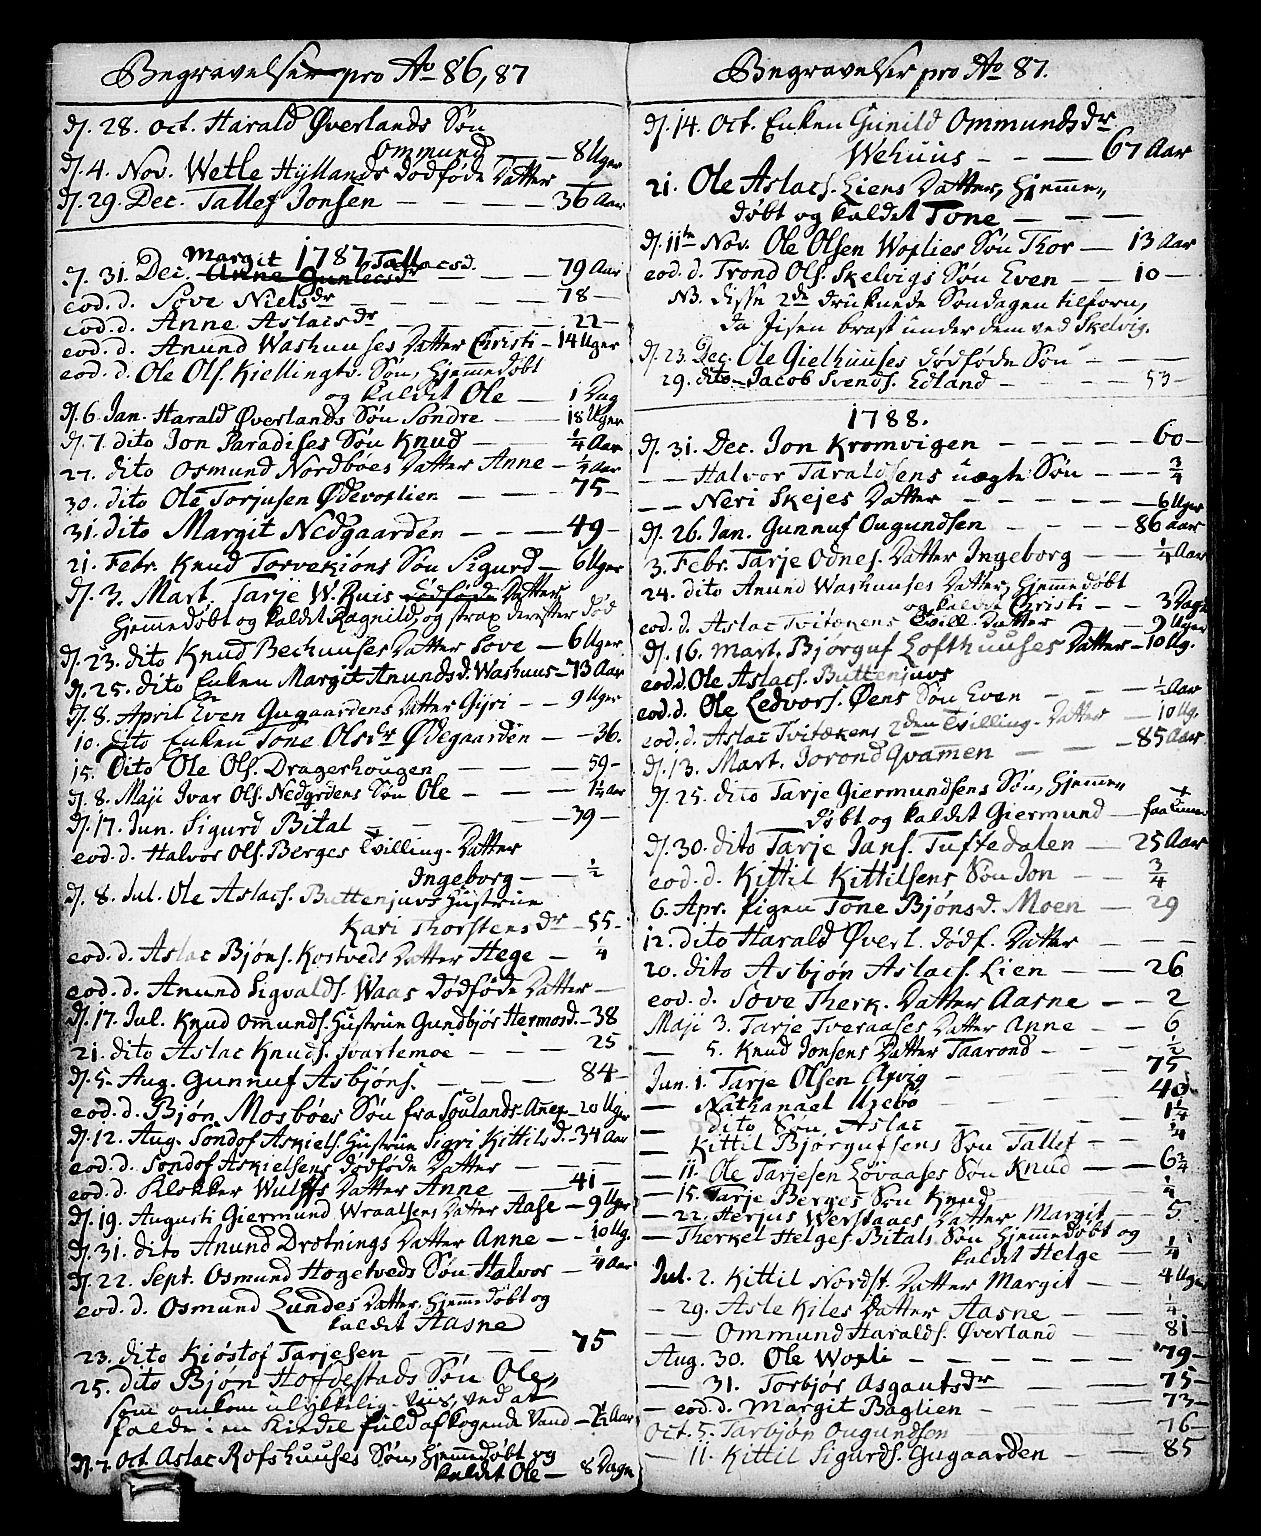 Begravelser pro Ao 86, 87
d. 28. Oct. Harald Øverlands Søn
Ommund — 8 Uger
d. 4. Nov. Wetle Hyllands dødføde Datter
d. 29. Dec. Tallef Jonsen — — — — 36 Aar
1787
Margit Tallacsd.
d. 31. Dec. Anne Gunlecsdr — 79 Aar
eod. d. Søve Nielsdr — — — — 78 —
eod. d. Anne Aslacsdr — — — — 22 —
eod. d. Anund Washuuses Datter Christi — 14 Uger
eod. d. Ole Ols. Kiellingtv. Søn, hjemmedøbt
og kaldet Ole — 1 Dag
d. 6. Jan. Harald Øverlands Søn Søndre — 18 Uger
d. 7. dito Jon Paradises Søn Knud — ¼ Aar
27. dito Osmund Nordbøes Datter Anne — ¼ Aar
30. dito Ole Torjusen Ødevoxlien — — — 75 —
31. dito Margit Nedgaarden — — — 49 —
21. Febr. Knud Torvekiøns Søn Sigurd — 6 Uger
d. 3. Mart. Tarje W. Ruis dødføde Datter
hjemmedøbt og kaldet Ragnild, og strax derefter død
d. 23. dito Knud Bechuuses Datter Søve — 6 Uger
d. 25. dito Enken Margit Anundsd. Washuus — 73 Aar
d. 8. April Even Gugaardens Datter Gyri — — 9 Uger
10. dito Enken Tone Olsdr Ødegaarden — — 36.
15. Dito Ole Ols. Dragerhougen — — — 59 —
d. 8. Maji Ivar Ols. Nedgrdens Søn Ole — — 1¼ Aar
d. 17. Jun. Sigurd Bital — — — — 39 —
eod. d. Halvor Ols. Berges Tvilling-Datter
Ingeborg — — ½
d. 8. Jul. Ole Aslacs. Buttenjuvs Hustrue
Kari Thorstensdr — 55 —
eod. d. Aslac Bjøns. Kostveds Datter Hege — ¼
eod. d. Anund Sigvalds. Waas dødføde Datter —
d. 17. Jul. Knud Omunds. Hustrue Gundbjør Hermosd. — 38
21. dito Aslac Knuds. Svartemoe — — — 25
d. 5. Aug. Gunnuf Asbjøns. — — — 84 —
eod. d. Bjøn Mosbøes Søn fra Soulands Anex — 20 Uger
d. 12. Aug. Søndof Askiels. Hustrue Sigri Kittilsd. — 34 Aar
eod. d. Søndof Askielsens dødføde Datter — — —
eod. d. Klokker Wulffs Datter Anne — — 41 —
d. 19. Augusti Giermund Wraalsens Datter Aase — 9 Uger
d. 31. dito Anund Drotnings Datter Anne — — 10 Ug.
d. 22. Sept. Osmund Hogetveds Søn Halvor — ¼ Aar
eod. d. Osmund Lundes Datter, hjemmedøbt og
kaldet Aasne
23. dito Kiøstof Tarjesen — — — — 75
25. dito Bjøn Hofdestads Søn Ole,
som omkom ulykkelig-viis, ved at
falde i en Kiedel fuld af kogende Vand — 2½ Aar
d. 7. Oct. Aslac Rofshuuses Søn, hjemmedøbt og
kaldet Ole — 8 Dage
Begravelser pro Ao 87.
d. 14. Oct. Enken Gunild Ommundsdr
Wehuus — — — 67 Aar
21. Ole Aslacs. Liens Datter, hjemme-
døbt og kaldet Tone — — —
d. 11te Nov. Ole Olsen Woxlies Søn Thor — 13 Aar
eod. d. Trond Ols. Skelvigs Søn Even — — 10 —
NB. disse 2de druknede Søndagen tilforn,
da Jisen brast under dem ved Skelvig.
d. 23. Dec. Ole Gielhuuses dødføde Søn — — —
29. dito — Jacob Svends. Edland — — — 53 —
1788.
d. 31. Dec. Jon Kromvigen — — — — 60 —
— — Halvor Taraldsens uægte Søn — — ¾
— — Neri Skejes Datter — — — — 6 Uger
d. 26. Jan. Gunnuf Ougundsen — — — 86 Aar
3. Febr. Tarje Odnes. Datter Ingeborg — — ¼ Aar
24. dito Anund Washuuses Datter, hjemmedøbt
og kaldet Christi — — 3 Dage
eod. d. Aslac Tvitækens Tvill. Datter — 9 Uger
d. 16. Mart. Bjørguf Lofthuuses Datter — 10 Ug.
eod. d. Ole Aslacs. Buttenjuvs
eod. d. Ole Ledvors. Øens Søn Even — — ½ Aar
eod. d. Aslac Tvitækens 2den Tvilling-Datter — 10 Ug.
d. 13. Mart. Jorond Qvamen — — — 85 Aar
d. 25. dito Tarje Giermundsens Søn, hjemme-
døbt og kaldet Giermund — faa Timer
d. 30. dito Tarje Jans. Tuftedalen — 25 Aar
eod. d. Kittil Kittilsens Søn Jon — — ¾
6. Apr. Pigen Tone Bjønsd. Moen — 29
12. dito Harald Øverl. dødf. Datter — — —
20. dito Asbjøn Aslacs. Lien — — 26
eod. d. Søve Therk. Datter Aasne — — 2
Maji 3. Tarje Tveraases Datter Anne — — 6
— 5. Knud Jonsens Datter Taarond — — ½
Jun. 1. Tarje Olsen Arvig — — — 75
— Nathanael Uzebø — 40 —
— dito Søn Aslac — — 1¼
— Kittil Bjørgufsens Søn Tallef — — ¼
— 11. Ole Tarjesen Løvaases Søn Knud — — 6¾
— 15. Tarje Berges Søn Knud — ¼
— 22. Herjus Werstaaes Datter Margit — 5
— Therkel Helges Bitals Søn hjemmedøbt og
kaldet Helge — ¼
Jul. 2. Kittil Nordst. Datter Margit — 4 Uger
— 29. Asle Kiles Datter Aasne — — ¼
— — Ommund Haralds. Øverland — — 81 —
Aug. 30. Ole Woxli — — — — — 79 —
— 31. Torbjør Asgautsdr — — 75 —
— eod. d. Margit Baglien — — — 73 —
Oct. 5. Tarbjøn Ougundsen — — — 76
— 11. Kittil Sigurds. Gugaarden — — 85